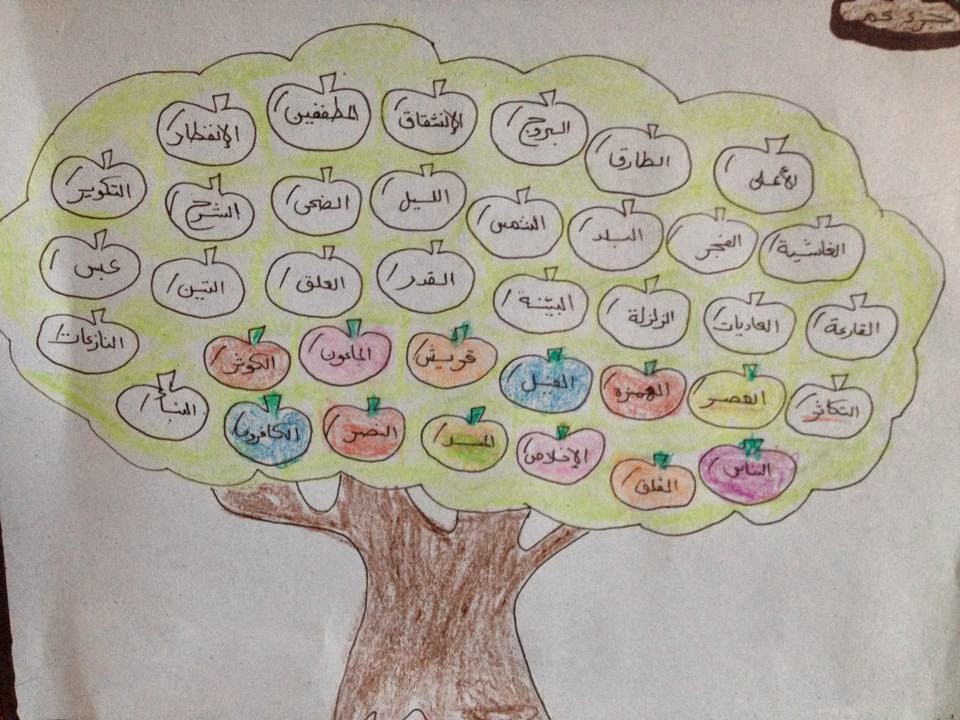 جزء عم
الأعلى
الطارق
البروج
الإنشقاق
المطففين
الإنفطار
التكوير
الغاشية
الفجر
البلد
الشمس
الليل
الضحى
الشرح
عبس
القارعة
العاديات
الزلزلة
البيّنة
القدر
العلق
التين
النازعات
التكاثر
العصر
الهمزه
الفيل
قريش
الماعون
الكوثر
النبأ
الناس
الفلق
الإخلاص
المسد
النصر
الكافرون